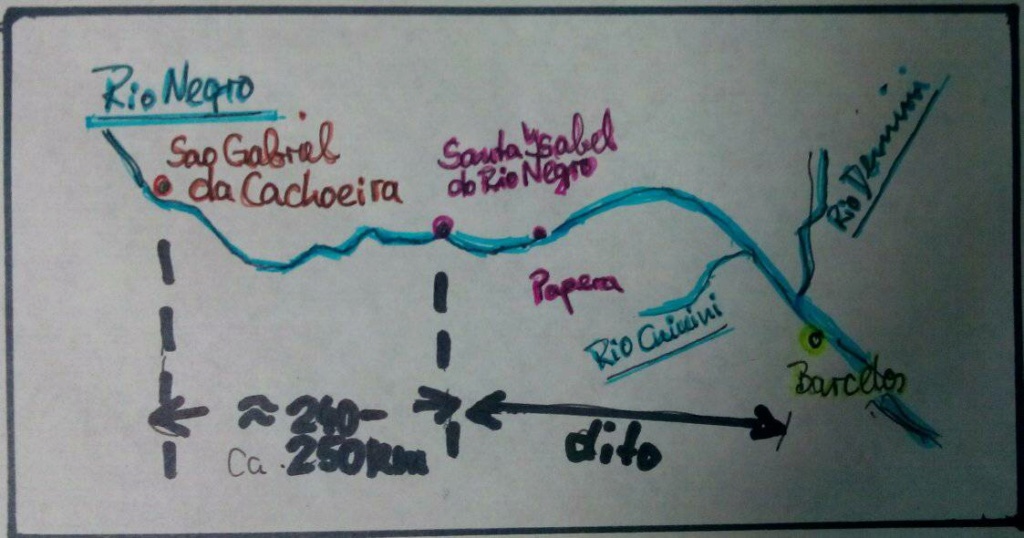 Rio Negro
Sao Gabriel
da Cachoeira
Santa Ysabel
do Rio Negro
Rio Demini
Papera
Rio Cuiuini
Barcelos
≈ 240-
Ca. 250km
dito